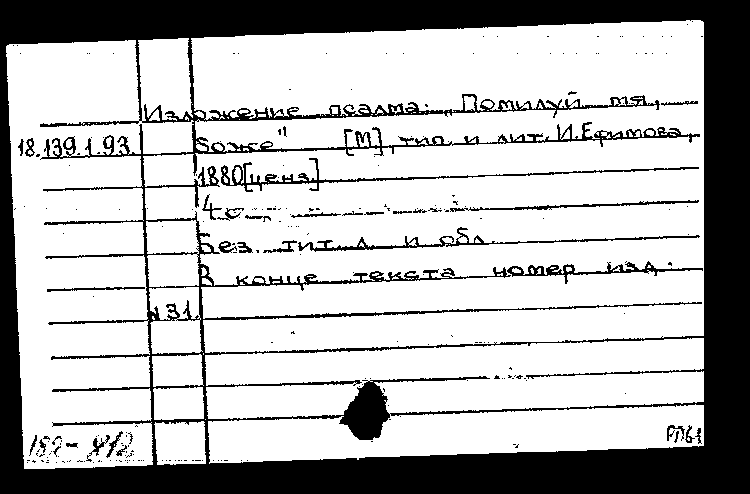 Изложение псалма: „Помилуй мя,
18.139.1.93. Боже" [М], тип. и лит. И.Ефимова,
1880 [ценз]
4 с.
Без тит. л. и обл.
В конце текста номер изд.:
N 31.
182-812